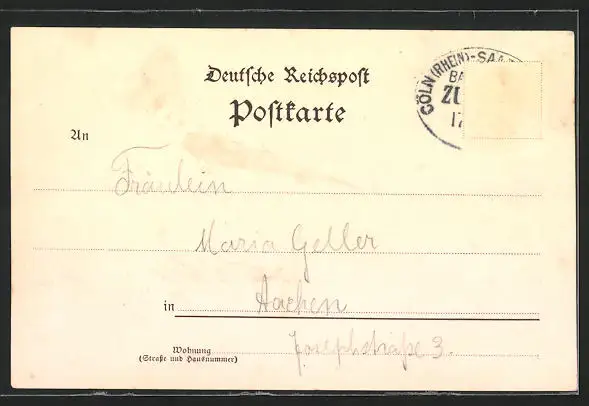 Deutsche Reichspost
Postkarte
CÖLN (RHEIN)-SAA
BA
ZU
17
An
Fräulein
Maria Geller
in Aachen
Wohnung Josephstraße 3.
(Straße und Hausnummer)